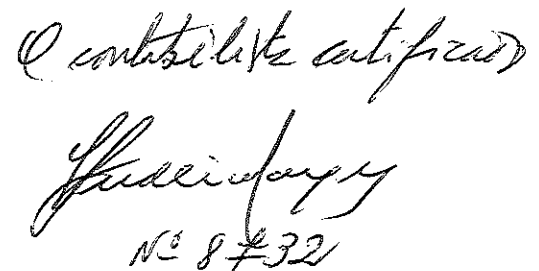 O contabilista certificado
Nº 8732